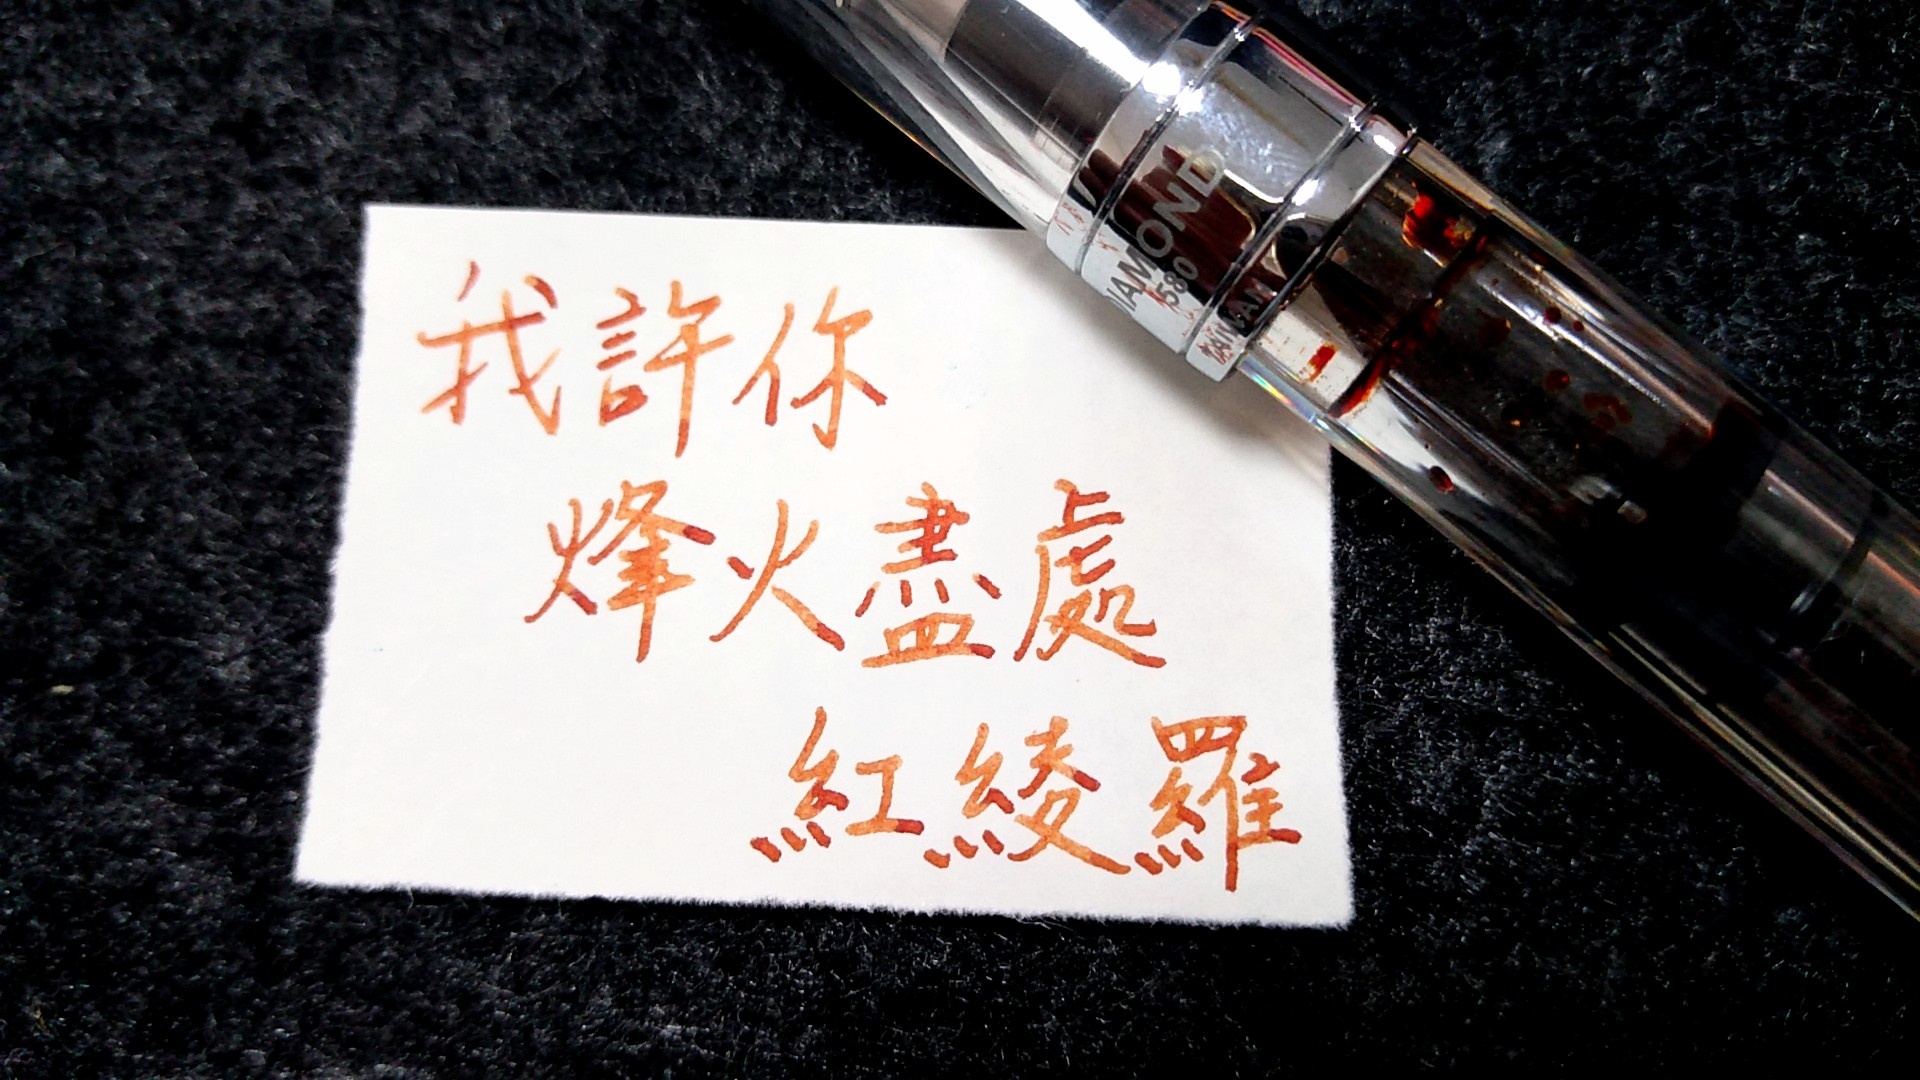 我許你
烽火盡處
紅綾羅
DIAMOND
580
TAIWAN